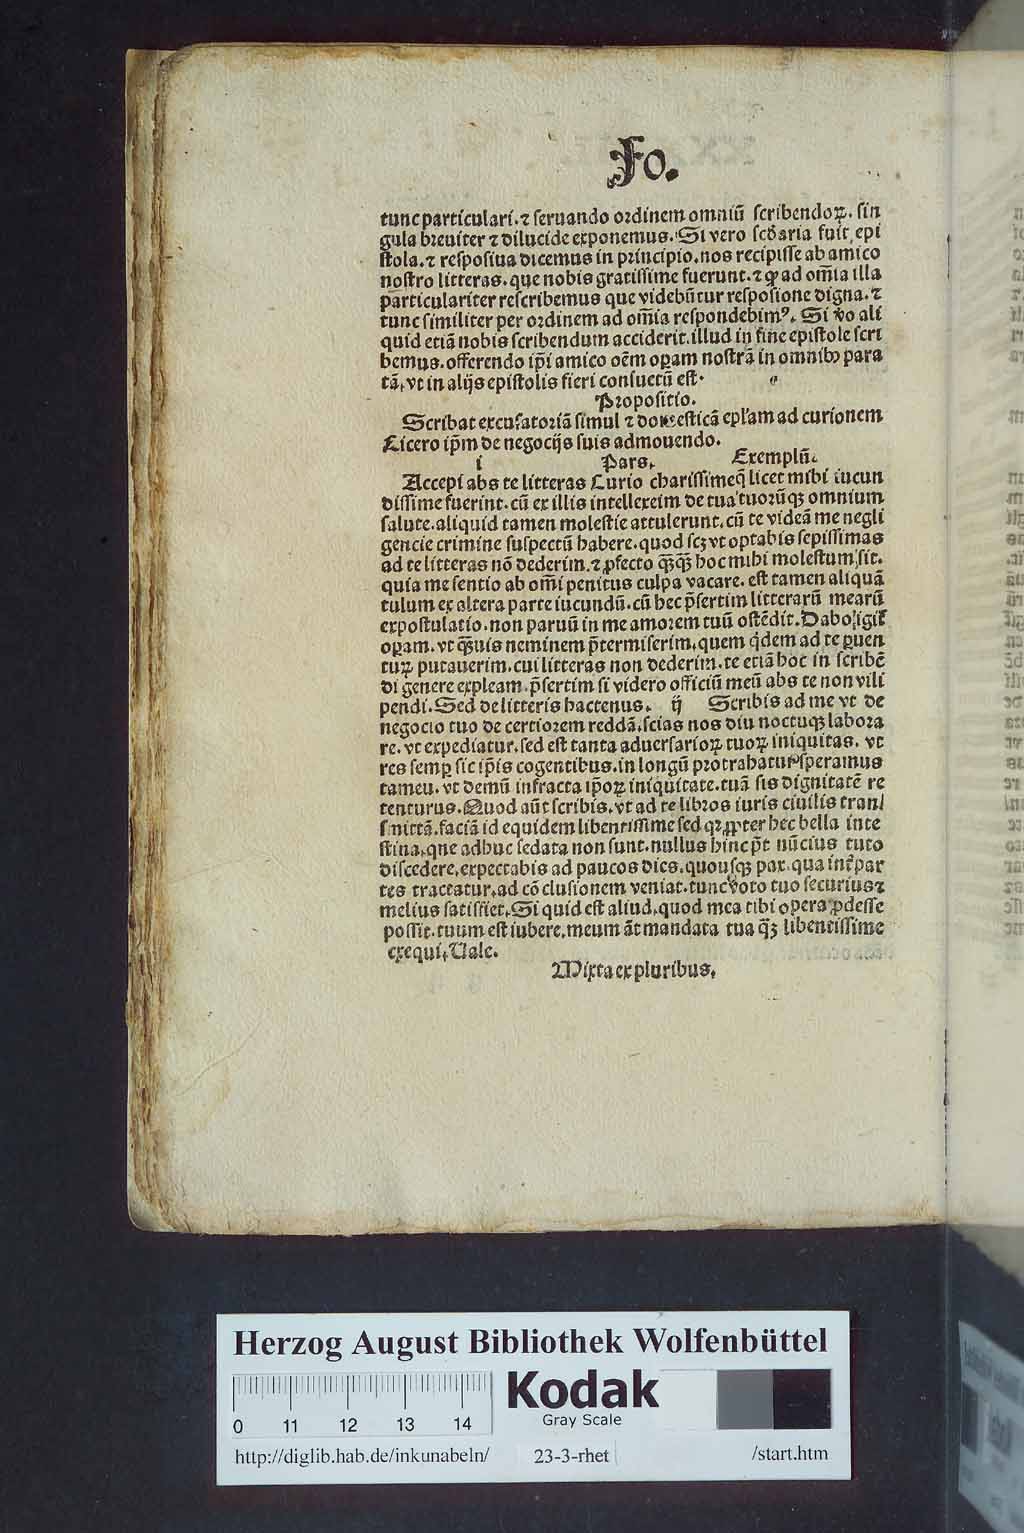 Fo.
tunc particulari. ⁊ seruando ordinem omniū scribendoꝝ. sin
gula breuiter ⁊ dilucide exponemus. Si vero scḋaria fuit epi
stola. ⁊ resposiua dicemus in principio. nos recipisse ab amico
nostro litteras. que nobis gratissime fuerunt. ⁊ ꝙ ad om̄ia illa
particulariter rescribemus que videbūtur resposione digna. ⁊
tunc similiter per ordinem ad om̄ia respondebimꝰ. Si v̊o ali
quid etiā nobis scribendum acciderit. illud in fine epistole scri
bemus. offerendo ip̄i amico oēm oꝑam nostrā in omnibꝫ para
tā. vt in alijs epistolis fieri consuetū est.
Propositio.
Scribat excusatoriā simul ⁊ domesticā epl'am ad curionem
Cicero ip̄m de negocijs suis admouendo.
i Pars. Exemplū.
Accepi abs te litteras Curio charissime q̄ licet mihi iucun
dissime fuerint. cū ex illis intellexeim de tua tuorūqꝫ omnium
salute. aliquid tamen molestie attulerunt. cū te videā me negli
gencie crimine suspectū habere. quod scꝫ vt optabis sepissimas
ad te litteras nō dederim. ⁊ ꝓfecto qᷓꝫqᷓꝫ hoc mihi molestum sit.
quia me sentio ab om̄i penitus culpa vacare. est tamen aliquā
tulum ex altera parte iucundū. cū hec p̄sertim litterarū mearū
expostulatio. non paruū in me amorem tuū ostēdit. Dabo igit᷑
oꝑam. vt qᷓꝫuis neminem p̄termiserim. quem q̇dem ad te ꝑuen
tuꝝ putauerim. cui litteras non dederim. te etiā hoc in scribē
di genere expleam. p̄sertim si videro officiū meū abs te non vili
pendi. Sed de litteris hactenus. ij Scribis ad me vt de
negocio tuo de certiorem reddā. scias nos diu noctuqꝫ labora
re. vt expediatur. sed est tanta aduersarioꝝ tuoꝝ iniquitas. vt
res semꝑ sic ip̄is cogentibus. in longū protrahatur. speramus
tameu. vt demū infracta ip̄oꝝ iniquitate. tuā sis dignitatē re
tenturus. Quod aūt scribis. vt ad te libros iuris ciuilis trans
smittā. faciā id equidem libentissime sed qꝛ ꝓpter hec bella inte
stina. que adhuc sedata non sunt. nullus hinc p̄t nūcius tuto
discedere. expectabis ad paucos dies. quousqꝫ pax. qua int̄ par
tes tractatur. ad cō clusionem veniat. tunc voto tuo securius ⁊
melius satisfiet. Si quid est aliud. quod mea tibi opera ꝓdesse
possit. tuum est iubere. meum āt mandata tua qᷓꝫ libentissime
exequi. Uale.
Mixta ex pluribus.
Herzog August Bibliothek Wolfenbüttel
0 11 12 13 14
Kodak
Gray Scale
http://diglib.hab.de/inkunabeln/ 23-3-rhet /start.htm